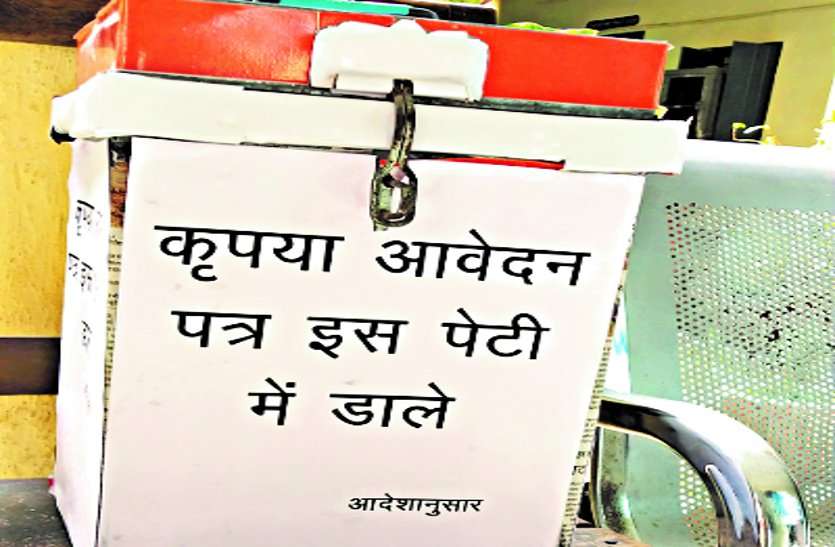 कृपया आवेदन
पत्र इस पेटी
में डाले
आदेशानुसार